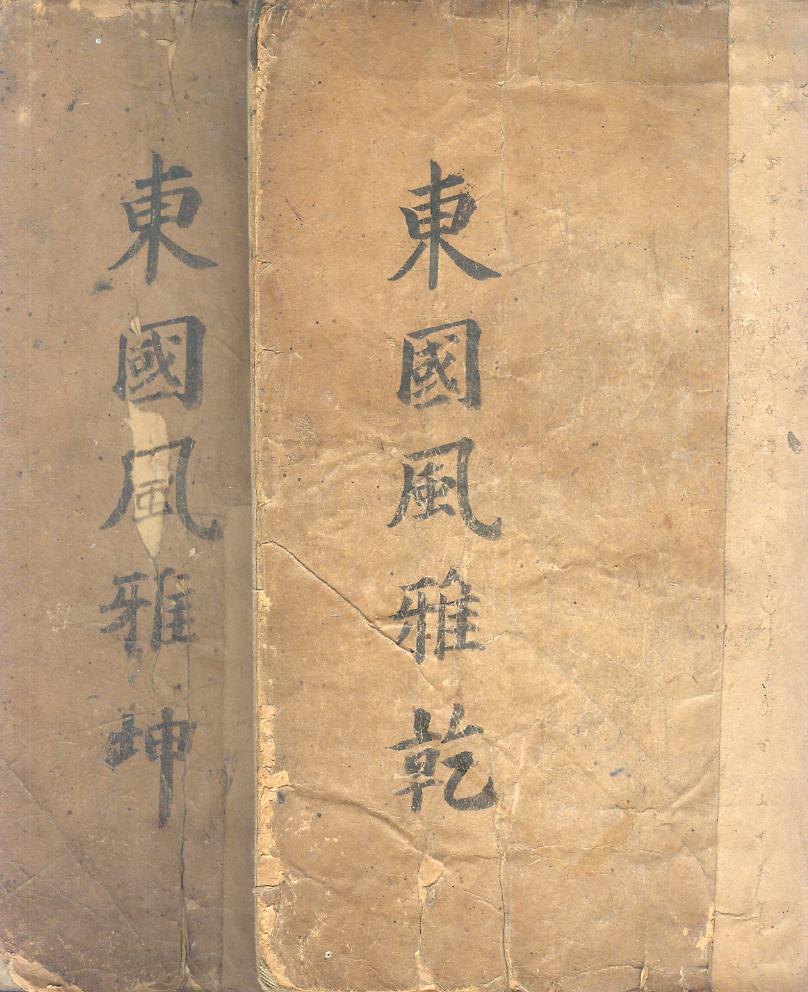 東國風雅乾
東國風雅坤